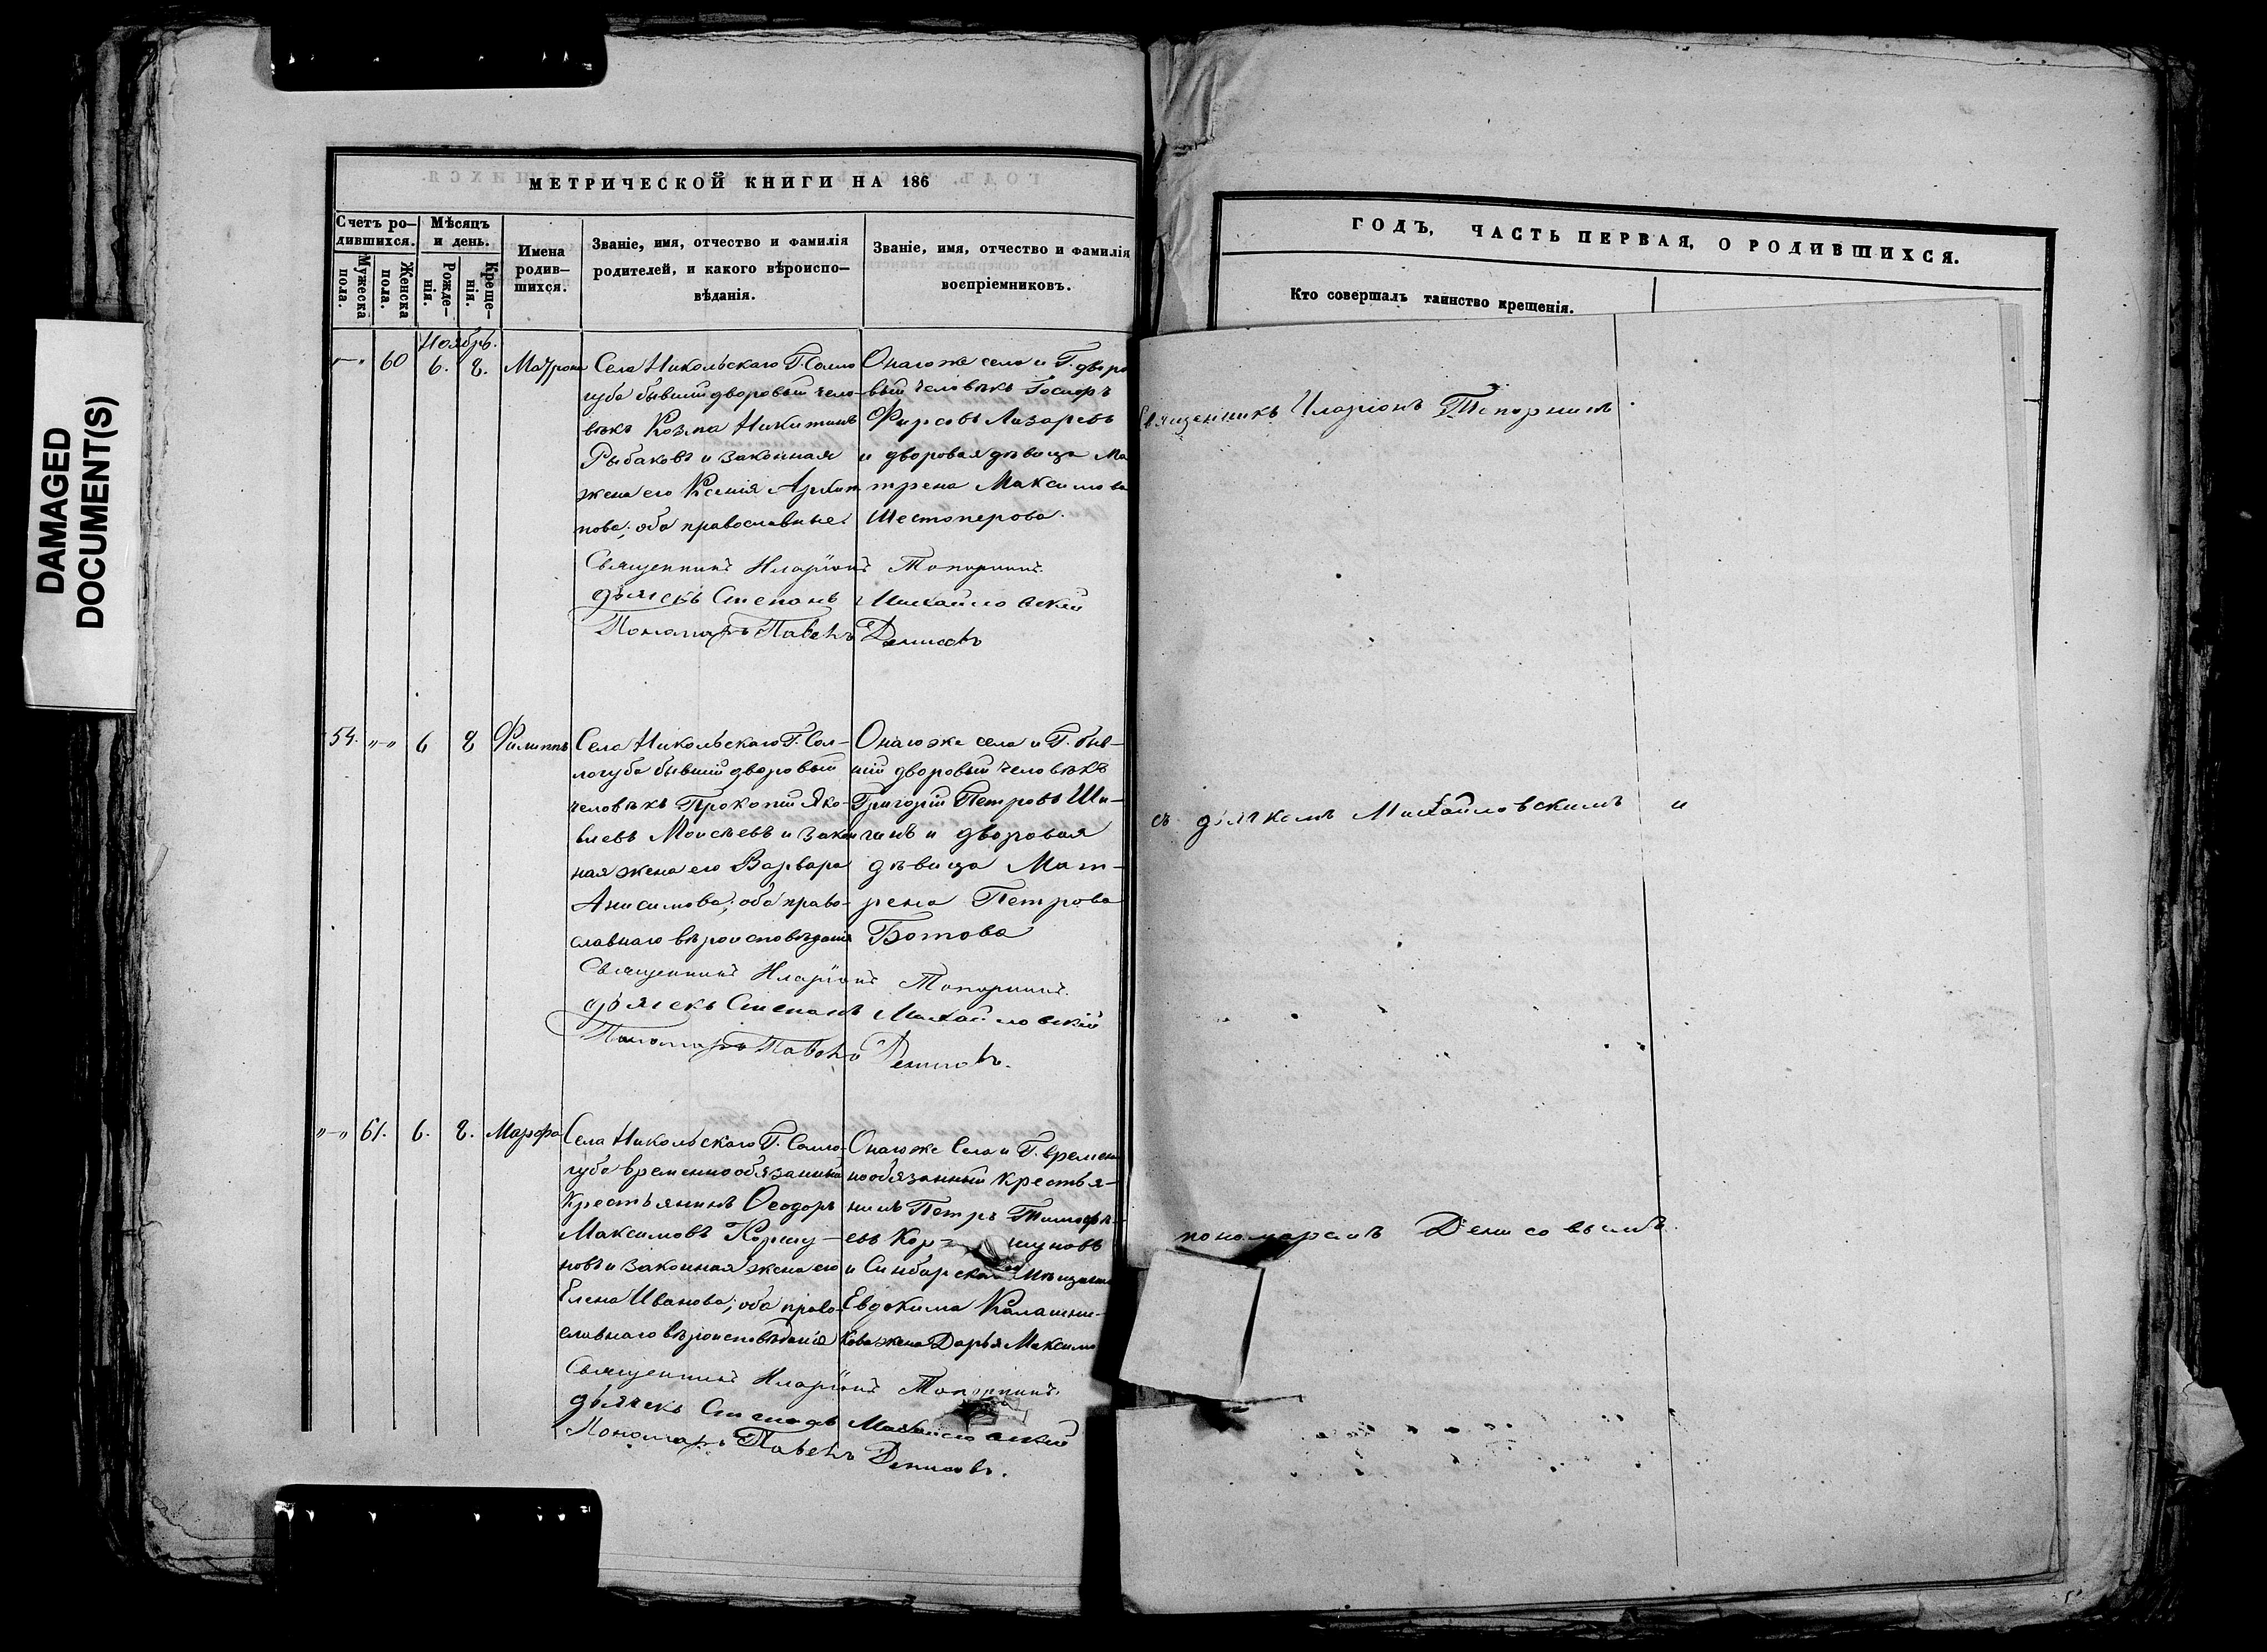 DAMAGED
DOCUMENT(S)
МЕТРИЧЕСКОЙ КНИГИ НА 186
Счетъ ро-
дившихся.
Мужеска
пола.
Женска
пола.
Мѣсяцъ
и день.
Рожде-
нія.
Креще-
нія.
Имена
родив-
шихся.
Званіе, имя, отчество и фамилія
родителей, и какого вѣроиспо-
вѣданія.
Званіе, имя, отчество и фамилія
воспріемниковъ.
Ноябрь.
60 6. 8. Матрона
Села Никольскаго Г. Солло
губа бывшій дворовый чело-
вѣкъ Козма Никитинъ
Рыбаковъ и законная
жена его Ксенія Архип
пова; оба православные.
Онаго же села и Г. дворо
вый человѣкъ
Фирсовъ Лазаревъ
и дворовая дѣвица Ма
трена Максимова
Шестоперова.
Священникъ Иларіонъ Топорнинъ.
дьячекъ Степанъ Михайловскій
Пономарь Павелъ Денисовъ
54. "-" 6 8 Филиппъ
Села Никольскаго Г. Сол-
логуба бывшій дворовый
человѣкъ Прокопій Яко-
влевъ Моисѣевъ и закон
ная жена его Варвара
Анисимова; оба право-
славнаго вѣроисповѣданія
Онаго же села и Г. быв-
шій дворовый человѣкъ
Григорій Петровъ Ши-
и дворовая
дѣвица Мат-
рена Петрова
Ботова
Священникъ Иларіонъ Топорнинъ.
дьячекъ Степанъ Михайловскій
Пономарь Павелъ Денисовъ.
"-" 61. 6. 8. Марфа
Села Никольскаго Г. Солло-
губа временнообязанный
крестьянинъ Ѳеодоръ
Максимовъ Коршу-
новъ и законная жена его
Елена Иванова; оба право-
славнаго вѣроисповѣданія
Онаго же Села и Г. времен
нообязанный крестья-
нинъ Петръ Тимофѣ-
евъ Кор- шуновъ
и Симбирскаго мѣщанина
Евдокима Калашни-
кова жена Дарья Максимо
Священникъ Иларіонъ Топорнинъ.
дьячекъ Степанъ Михайловскій
Пономарь Павелъ Денисовъ.
ГОДЪ, ЧАСТЬ ПЕРВАЯ, О РОДИВШИХСЯ.
Кто совершалъ таинство крещенія.
Священникъ Иларіонъ Топорнинъ.
съ дьячкомъ Михайловскимъ и
пономаремъ Денисовымъ.